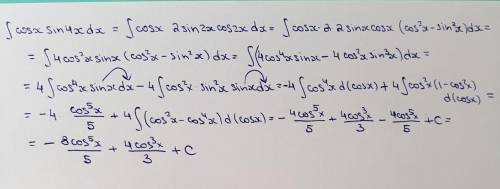 ∫cosx sin4x dx = ∫cosx 2sin2x cos2x dx = ∫cosx·2·2sinx cosx (cos²x - sin²x)dx =
= ∫4cos²x sinx (cos²x - sin²x) dx = ∫(4cos⁴x sinx - 4cos²x sin³x)dx =
= 4∫cos⁴x sinx dx - 4∫cos²x sin²x sinx dx = -4∫cos⁴x d(cosx) + 4∫cos²x (1-cos²x) d(cosx) =
= -4 cos⁵x/5 + 4∫(cos²x - cos⁴x) d(cosx) = - 4cos⁵x/5 + 4cos³x/3 - 4cos⁵x/5 + C =
= - 8cos⁵x/5 + 4cos³x/3 + C